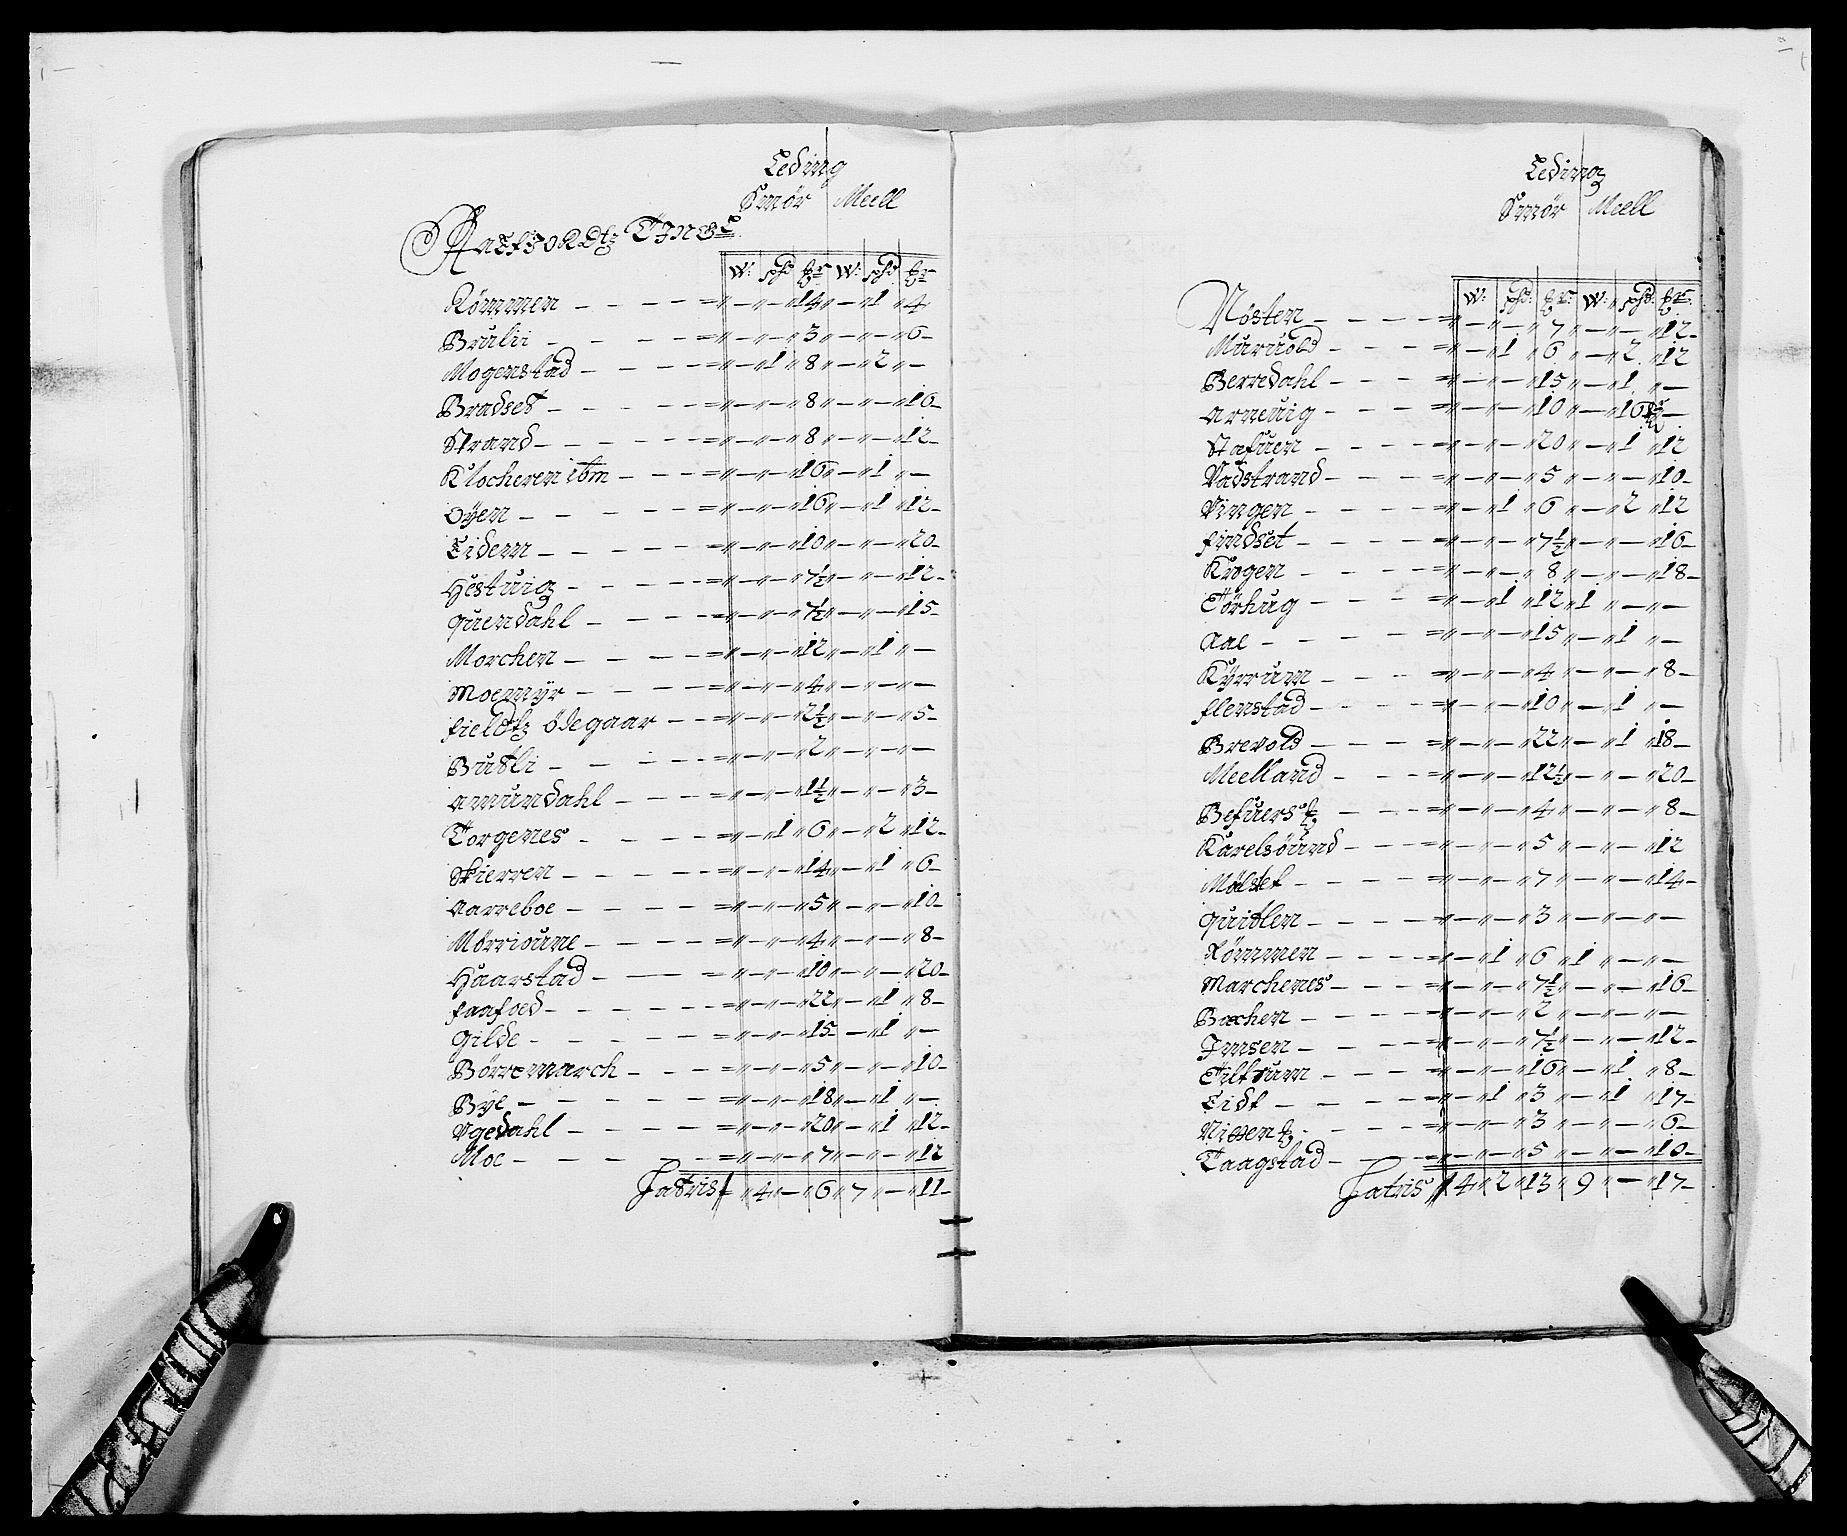 Leding
Smör Meell
Ratfiordtz Tinge
W: pſd ℔r W: pſd ℔r
Römmen – – – – = „ – „ – „ 14 „ – „ 1 „ 4
Brulii – – – – = „ – „ – „ 3 „ – „ – „ 6 –
Mogenstad – – – – = „ – „ 1 „ 8 „ – „ 2 „ –
Bradset – – – – = „ – „ – „ 8 „ – „ – „ 16 –
Strand – – – – = „ – „ – „ 8 „ – „ – „ 12 –
Klocheren ibm – – – = „ – „ – „ 16 „ – „ 1 „ –
Öyen – – – – = „ – „ – „ 16 „ – „ 1 „ 12 –
Eidem – – – – = „ – „ – „ 10 „ – „ – „ 20 –
Hestuig – – – – = „ – „ – „ 7½ „ – „ – „ 12 –
Quendahl – – – = „ – „ – „ 7½ „ – „ – „ 15 –
Morchen – – – – = „ – „ – „ 12 „ – „ 1 „ –
Moemÿr – – – – = „ – „ – „ 4 „ – „ – „ –
Fieldtz ödegaar – – = „ – „ – „ 2½ „ – „ – „ 5 –
Butli – – – – = „ – „ – „ 2 „ – „ – „ –
Amundahl – – – = „ – „ – „ 1½ „ – „ – „ 3 –
Torgenes – – – – = „ – „ 1 „ 6 „ – „ 2 „ 12 –
Skierren – – – – = „ – „ – „ 14 „ – „ 1 „ 6 –
Aarreboe – – – – = „ – „ – „ 5 „ – „ – „ 10 –
Mörrioune – – – – = „ – „ – „ 4 „ – „ – „ 8 –
Haarstad – – – = „ – „ – „ 10 „ – „ – „ 20 –
Faafoed – – – – = „ – „ – „ 22 „ – „ 1 „ 8 –
Gilde – – – – = „ – „ – „ 15 „ – „ 1 „ –
Börremarch – – – = „ – „ – „ 5 „ – „ – „ 10 –
Bye – – – – = „ – „ – „ 18 „ – „ 1 „ –
Vgedahl – – – – = „ – „ – „ 20 „ – „ 1 „ 12 –
Moe – – – – = „ – „ – „ 7 „ – „ – „ 12
Latris „ 4 „ – „ 6 „ 7 „ – „ 11 –
Leding
Smör Meell
W: pſd: ℔r: W: pſd: ℔r:
Nösten – – – – = „ – „ – „ 7 „ – „ – „ 12 –
Muruold – – – = „ – „ 1 „ 6 „ – „ 2 „ 12
Berredahl – – – = „ – „ – „ 15 „ – „ 1 „ –
Arneuig – – – = „ – „ – „ 10 „ – „ 16 –
Stafuen – – – = „ – „ – „ 20 „ – „ 1 „ 12
Vadstrand – – – = „ – „ – „ 5 „ – „ – „ 10 –
Vingen – – – = „ – „ 1 „ 6 „ – „ 2 „ 12
Findset – – – = „ – „ – „ 7½ „ – „ – „ 16 –
Krogen – – – = „ – „ – „ 8 „ – „ – „ 18 –
Törhug – – – = „ – „ 1 „ 12 „ 1 „ – „ –
Aae – – – – = „ – „ – „ 15 „ – „ 1 „ –
Kÿrrum – – – = „ – „ – „ 4 „ – „ – „ 8 –
Flenstad – – – = „ – „ – „ 10 „ – „ 1 „ –
Brevold – – – = „ – „ – „ 22 „ – „ 1 „ 18 –
Meelland – – – = „ – „ – „ 12½ „ – „ – „ 20 –
– – – = „ – „ – „ 4 „ – „ – „ 8 –
Karelsöund – – – = „ – „ – „ 5 „ – „ – „ 12
Mölstet – – – = „ – „ – „ 7 „ – „ – „ 14 –
Quitlen – – – = „ – „ – „ 3 „ – „ – „ –
Römmen – – – = „ – „ 1 „ 6 „ 1 „ – „ –
Marchenes – – – = „ – „ – „ 7½ „ – „ – „ 16 –
Bochen – – – = „ – „ – „ 2 „ – „ – „ –
Imsen – – – = „ – „ – „ 7½ „ – „ – „ 12 –
Tiltrum – – – = „ – „ – „ 16 „ – „ 1 „ 8 –
Eidt – – – – = „ – „ 1 „ 3 „ – „ 1 „ 17 –
– – – = „ – „ – „ 3 „ – „ – „ 6 –
Taagstad – – – = „ – „ – „ 5 „ – „ – „ 10 –
Latris „ 4 „ 2 „ 13 „ 9 „ – „ 17 –